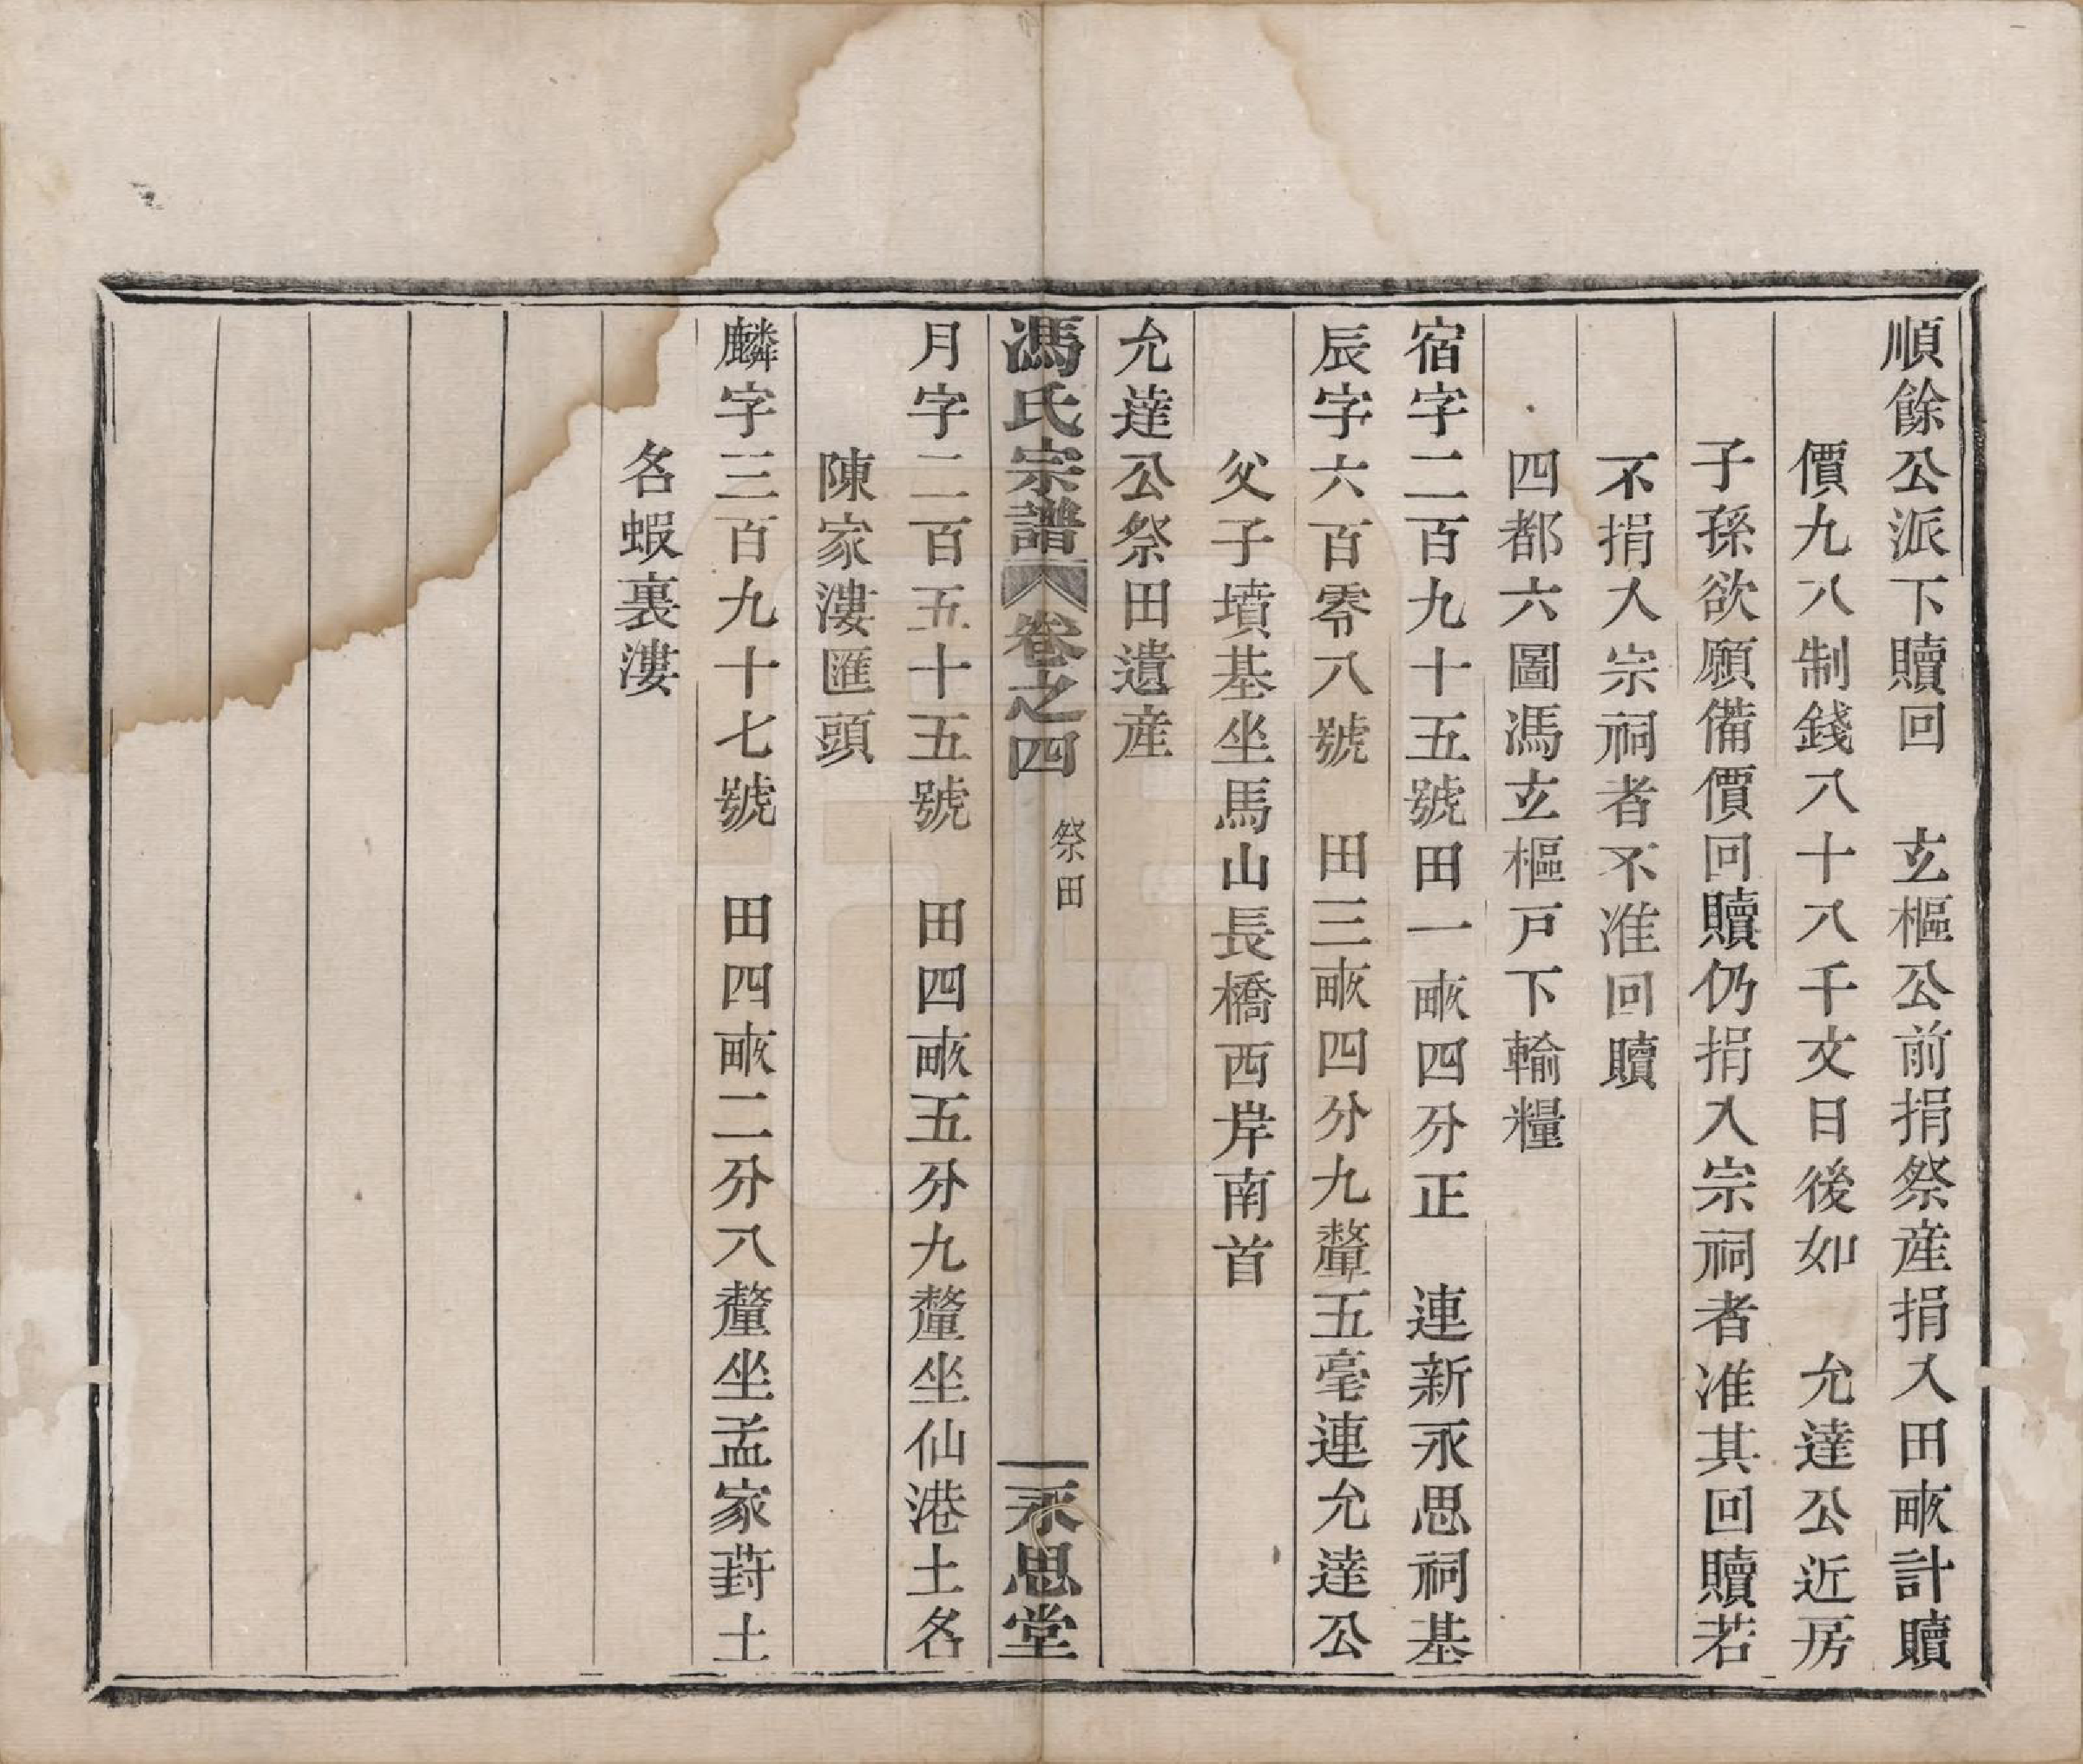 順餘公派下贖回　玄樞公前捐祭産捐入田畝計贖
價九八制錢八十八千文日後如　允達公近房
子孫欲願備價回贖仍捐入宗祠者准其回贖若
不捐入宗祠者不准回贖
四都六圖馮玄樞戸下輸糧
宿字二百九十五號田一畝四分正　連新永思祠基
辰字六百零八號　田三畝四分九釐五毫連允達公
父子墳基坐馬山長橋西岸南首
允達公祭田遺産
馮氏宗譜　卷之四　祭田　永思堂
月字二百五十五號　田四畝五分九釐坐仙港土名
陳家漊匯頭
麟字三百九十七號　田四畝二分八釐坐孟家葑土
名蝦裏漊